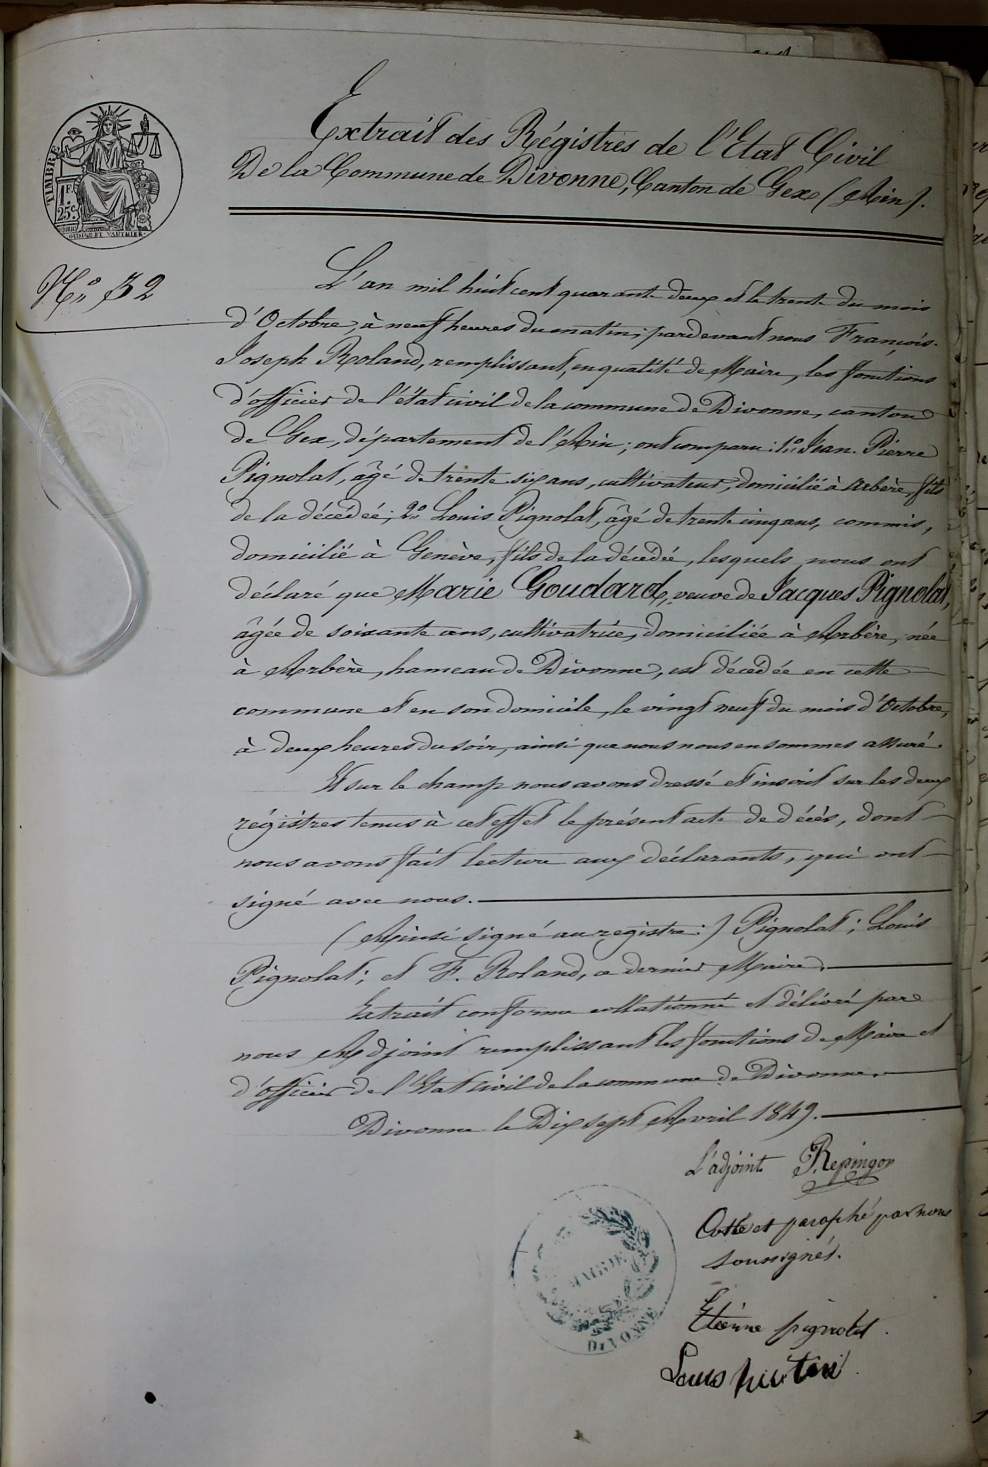 Extrait des Régistres de l'Etat Civil
De la Commune de Divonne, Canton de Gex (Ain).
TIMBRE
1 F.
25 c.
N.º 32
L'an mil huit cent quarante deux et le trente du mois
d'Octobre, à neuf heures du matin; pardevant nous François-
Joseph Roland, remplissant, en qualité de Maire, les fonctions
d'officier de l'état civil de la commune de Divonne, canton
de Gex, département de l'Ain; ont comparu: 1.º Jean-Pierre
Pignolat, âgé de trente six ans, cultivateur, domicilié à Arbère, fils
de la décédée; 2.º Louis Pignolat, âgé de trente cinq ans, commis,
domicilié à Genève, fils de la décédée, lesquels nous ont
déclaré que Marie Goudard, veuve de Jacques Pignolat,
âgée de soixante ans, cultivatrice, domiciliée à Arbère, née
à Arbère, hameau de Divonne, est décédée en cette
commune et en son domicile, le vingt neuf du mois d'Octobre,
à deux heures du soir, ainsi que nous nous en sommes assuré.
Et sur le champ nous avons dressé et inscrit sur les deux
régistres tenus à cet effet le présent acte de décès, dont
nous avons fait lecture aux déclarants, qui ont
signé avec nous.
(Ainsi signé au registre:) Pignolat; Louis
Pignolat; et F. Roland, a dernier Maire.
Extrait conforme collationné et délivré par
nous Adjoint remplissant les fonctions de Maire et
d'officier de l'Etat civil de la commune de Divonne.
Divonne le Dix sept Avril 1849.
L'adjoint Repingon
Cotté et paraphé par nous
soussignés.
Etienne pignolet.
Louis
MAIRIE
DIVONNE